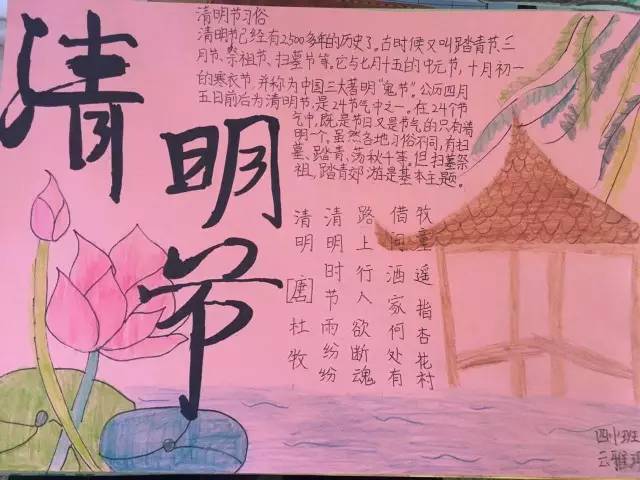 清明节
清明节习俗
清明节已经有2500多年的历史了。古时候又叫踏青节、三
月节、祭祖节、扫墓节等。它与七月十五的中元节，十月初一
的寒衣节，并称为中国三大著明“鬼节”。公历四月
五日前后为清明节，是24节气中之一。在24个节
气中，既是节日又是节气的只有清
明一个。虽然各地习俗不同，有扫
墓、踏青、荡秋千等。但扫墓祭
祖，踏青郊游是基本主题。
清明 唐 杜牧
清明时节雨纷纷
路上行人欲断魂
借问酒家何处有
牧童遥指杏花村
班
云雅